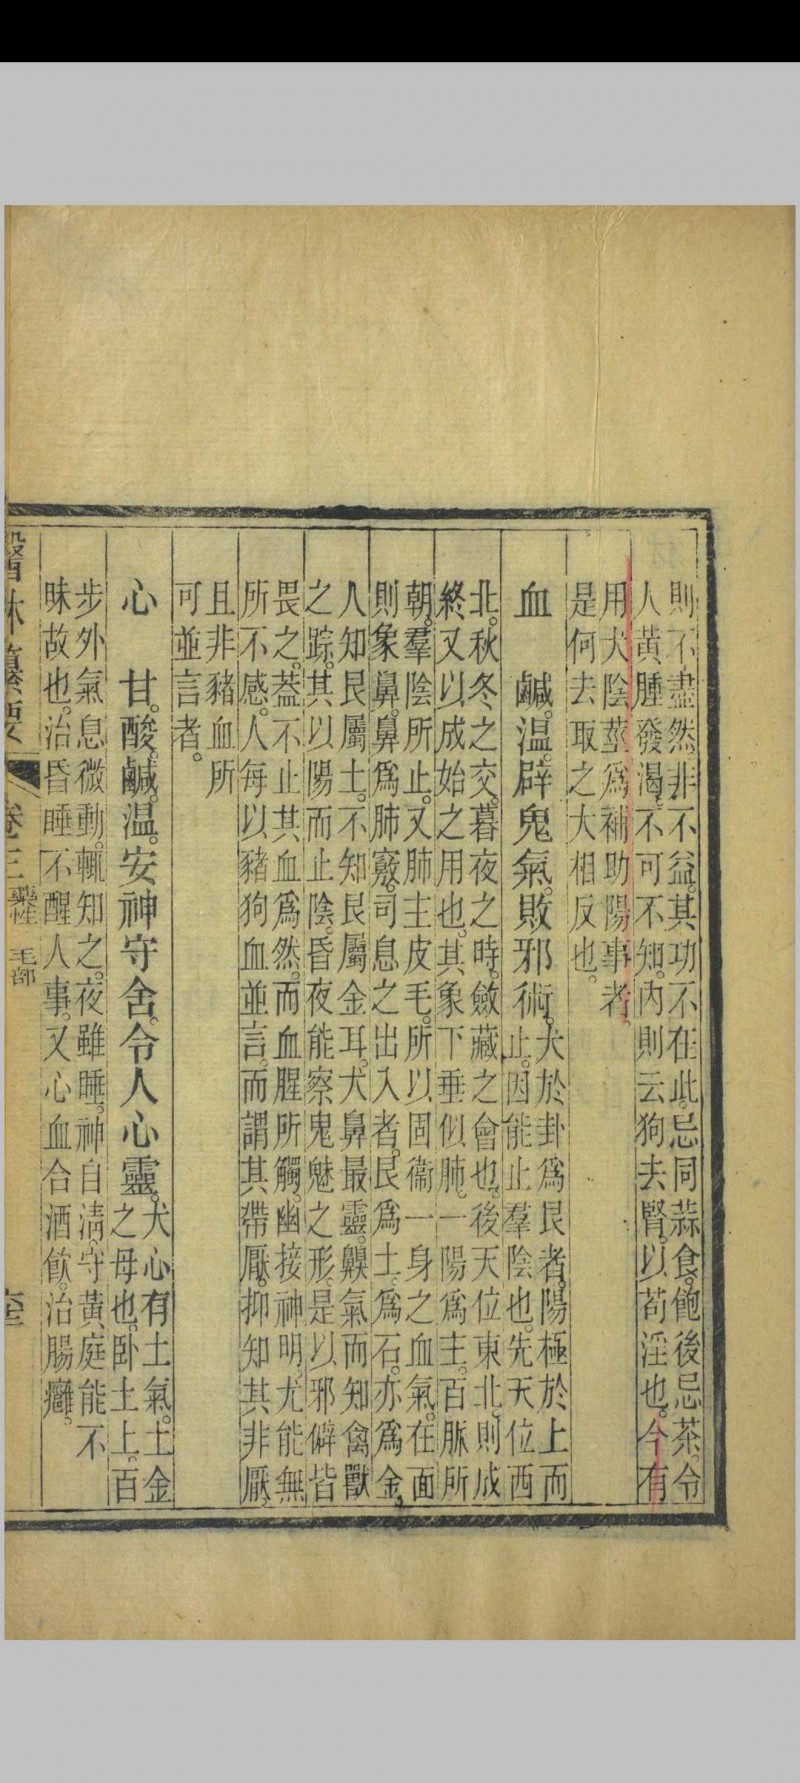 則不盡然非不益其功不在此。忌同蒜食。飽後忌茶。令
人黃腫發渴不可不知。內則云狗去腎。以苟淫也。今有
用犬陰莖爲補助陽事者。
是何去取之大相反也。
血　鹹。温。辟鬼氣。敗邪術。
犬於卦爲艮者。陽極於上而
止。因能止羣陰也。先天位西
北。秋冬之交。暮夜之時。斂藏之會也。後天位東北。則成
終又以成始之用也。其象下垂似肺。一陽爲主。百脈所
朝。羣陰所止。又肺主皮毛。所以固衞一身之血氣。在面
則象鼻。鼻爲肺竅。司息之出入者。艮爲土。爲石。亦爲金。
人知艮屬土。不知艮屬金耳。犬鼻最靈。齅氣而知禽獸
之踪。其以陽而止陰。昏夜能察鬼魅之形。是以邪僻皆
畏之。蓋不止其血爲然。而血腥所觸。幽接神明。尤能無
所不感。人每以豬狗血並言。而謂其帶厭。抑知其非厭。
且非豬血所
可並言者。
心　甘。酸。鹹。温。安神守舍。令人心靈。
犬心有土氣。土金
之母也。卧土上。百
步外氣息微動。輒知之。夜雖睡。神自淸。守黃庭能不
昧故也。治昏睡不醒人事。又心血合酒飮。治腸癰。
醫林纂要
卷三
藥性
毛部